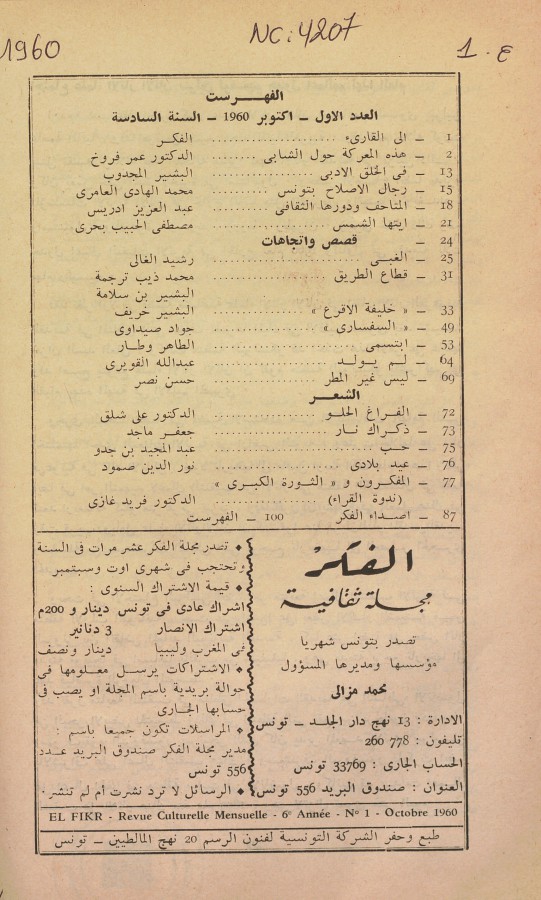 1960
NC: 4207
1 . ع
الفهــــرست
العدد الاول ــ اكتوبر 1960 ــ السنة السادسة
1 ــ الى القارىء ........................ الفكــر
2 ــ هذه المعركة حول الشابى ........ الدكتور عمر فروخ
13 ــ فى الخلق الادبى ................. البشير المجدوب
15 ــ رجال الاصلاح بتونس .......... محمد الهادى العامرى
18 ــ المتاحف ودورها الثقافى ......... عبد العزيز ادريس
21 ــ ايتها الشمس ..................... مصطفى الحبيب بحرى
24 ــ قصص واتجاهات
25 ــ الغبــى .......................... رشيد الغالى
31 ــ قطاع الطريق .................... محمد ذيب ترجمة
البشير بن سلامة
33 ــ « خليفة الاقرع » ............... البشير خريف
49 ــ « السفسارى » .................. جواد صيداوى
53 ــ ابتسمى .......................... الطاهر وطــار
64 ــ لــم يــولــد ..................... عبدالله القويرى
69 ــ ليس غير المطر .................. حسن نصر
الشـعـــر
72 ــ الفــراغ الحلــو ................. الدكتور على شلق
73 ــ ذكــراك نــار .................... جعفــر ماجد
75 ــ حــب ........................... عبد المجيد بن جدو
76 ــ عيد بلادى ...................... نور الدين صمود
77 ــ المفكرون و « الثورة الكبرى »
(ندوة القراء) ................. الدكتور فريد غازى
87 ــ اصــداء الفكر 100 ــ الفهرست
الفكر
مجلة ثقافية
تصدر بتونس شهريا
مؤسسها ومديرها المسؤول
محمد مزالى
الادارة : 13 نهج دار الجلــد ــ تونس
تليفون : 778 260
الحساب الجارى : 33769 تونس
العنوان : صندوق البريد 556 تونس
♦ تصدر مجلة الفكر عشر مرات فى السنة
وتحتجب فى شهرى اوت وسبتمبر
♦ قيمة الاشتراك السنوى :
اشراك عادى فى تونس دينار و 200م
اشتراك الانصار 3 دنانير
فى المغرب وليبيا دينار ونصف
♦ الاشتراكات يرســل معلومها فى
حوالة بريدية باسم المجلة او يصب فى
حسابها الجـارى
♦ المراسلات تكون جميعا باسم :
مدير مجلة الفكر صندوق البريد عــدد
556 تونس
♦ الرسائل لا ترد نشرت أم لم تنشر ·
EL FIKR - Revue Culturelle Mensuelle - 6e Année - No 1 - Octobre 1960
طبع وحفر الشركة التونسية لفنون الرسم 20 نهج المالطيين ــ تونس